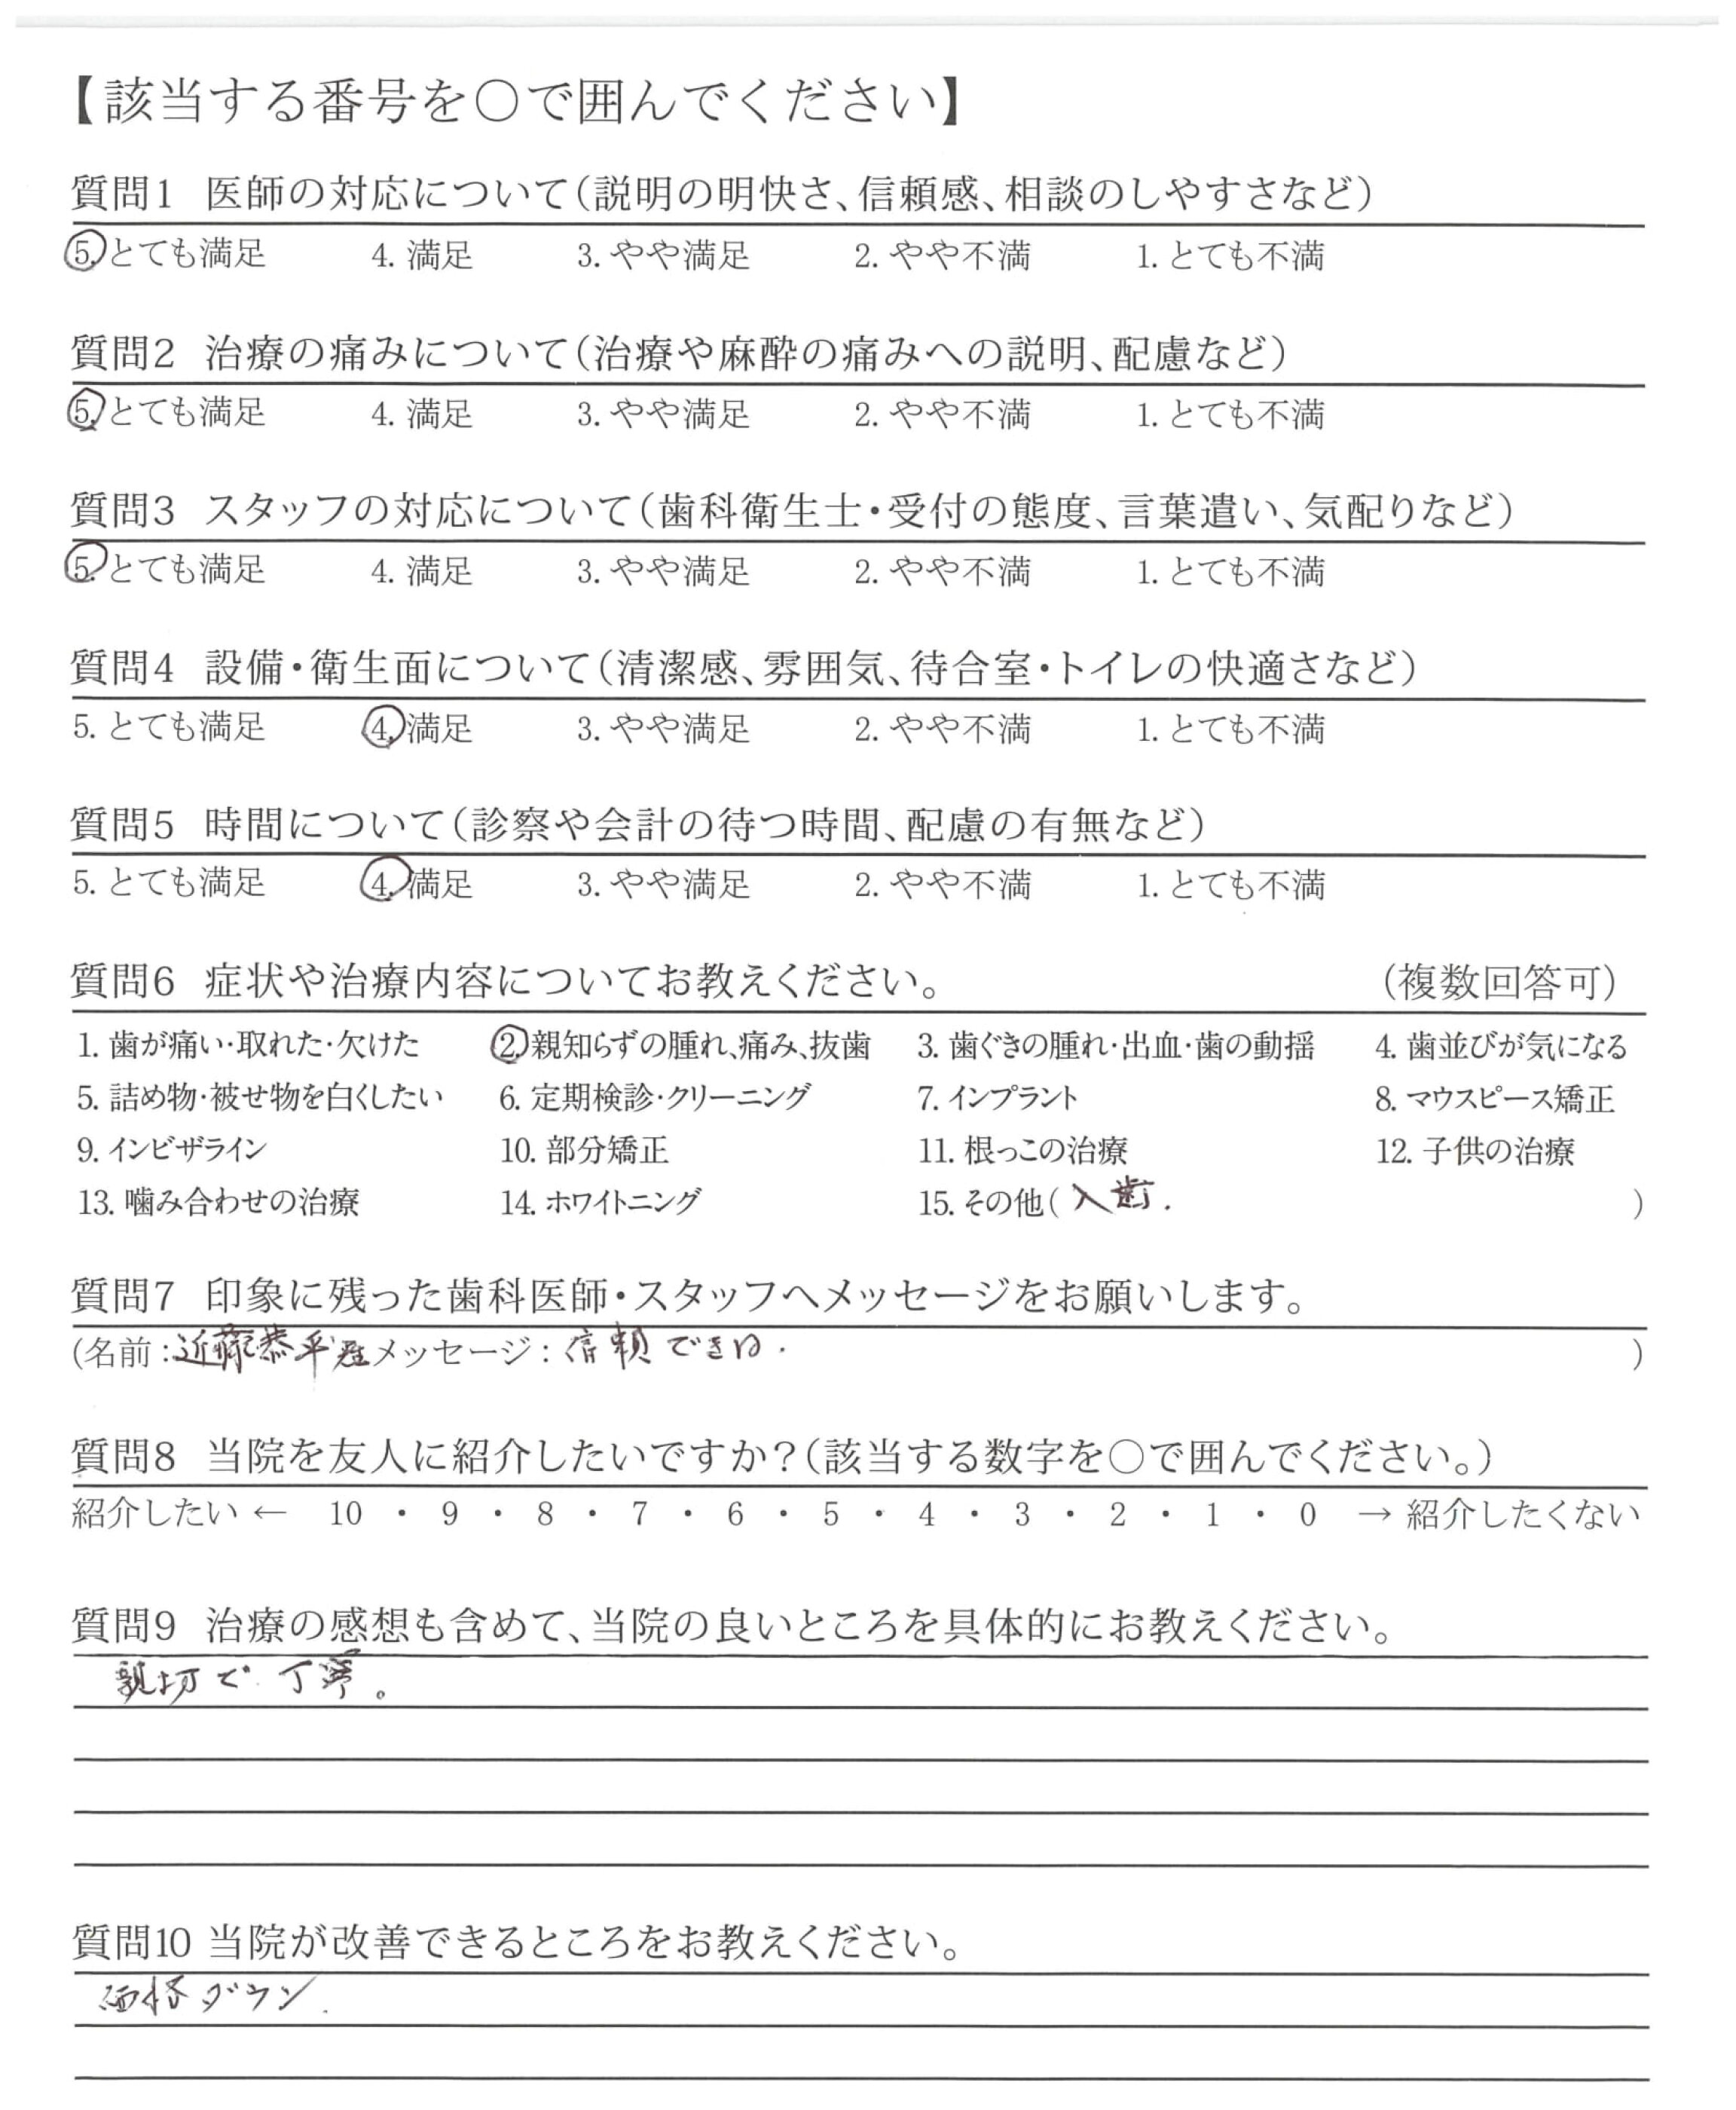 【該当する番号を○で囲んでください】
質問1 医師の対応について(説明の明快さ、信頼感、相談のしやすさなど)
5. とても満足 4. 満足 3. やや満足 2. やや不満 1. とても不満
質問2 治療の痛みについて(治療や麻酔の痛みへの説明、配慮など)
5. とても満足 4. 満足 3. やや満足 2. やや不満 1. とても不満
質問3 スタッフの対応について(歯科衛生士・受付の態度、言葉遣い、気配りなど)
5. とても満足 4. 満足 3. やや満足 2. やや不満 1. とても不満
質問4 設備・衛生面について(清潔感、雰囲気、待合室・トイレの快適さなど)
5. とても満足 4. 満足 3. やや満足 2. やや不満 1. とても不満
質問5 時間について(診察や会計の待つ時間、配慮の有無など)
5. とても満足 4. 満足 3. やや満足 2. やや不満 1. とても不満
質問6 症状や治療内容についてお教えください。 (複数回答可)
1. 歯が痛い・取れた・欠けた 2. 親知らずの腫れ、痛み、抜歯 3. 歯ぐきの腫れ・出血・歯の動揺 4. 歯並びが気になる
5. 詰め物・被せ物を白くしたい 6. 定期検診・クリーニング 7. インプラント 8. マウスピース矯正
9. インビザライン 10. 部分矯正 11. 根っこの治療 12. 子供の治療
13. 噛み合わせの治療 14. ホワイトニング 15. その他( 入歯. )
質問7 印象に残った歯科医師・スタッフへメッセージをお願いします。
(名前:近藤恭平 メッセージ:信頼できる. )
質問8 当院を友人に紹介したいですか?(該当する数字を○で囲んでください。)
紹介したい ← 10 ・ 9 ・ 8 ・ 7 ・ 6 ・ 5 ・ 4 ・ 3 ・ 2 ・ 1 ・ 0 → 紹介したくない
質問9 治療の感想も含めて、当院の良いところを具体的にお教えください。
親切で丁寧。
質問10 当院が改善できるところをお教えください。
価格ダウン.